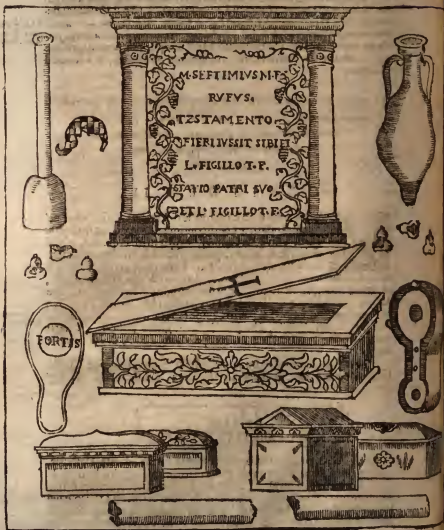 M·SEPTIMIVS M·F
RVFVS·
TZSTAMENTO
FIERI IVSSIT SIBI ET
L·FIGILLO T·P·
STATIO PATRI SVO
ET L·FIGILLO T·F·
FORTIS